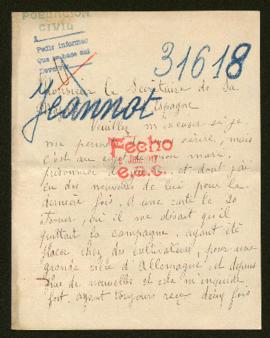 POBLACION
CIVIL
Pedir informac
Que se hace aqui
31618
Monsieur le Secrétaire de Sa
Espagne
Jeannot
Veuillez m'excuser si je
me permets de vous écrire, mais
c'est au sujet de mon mari,
prisonnier de guerre, et dont j'ai
Fecho
E.A.C.
eu des nouvelles de lui pour la
dernière fois, d'une carte le 20
où il me disait qu'il
quittait la campagne, ayant été
placé chez des cultivateurs, pour une
grande ville d'Allemagne, et depuis
plus de nouvelles et cela m'inquiète
fort, ayant toujours reçu deux fois